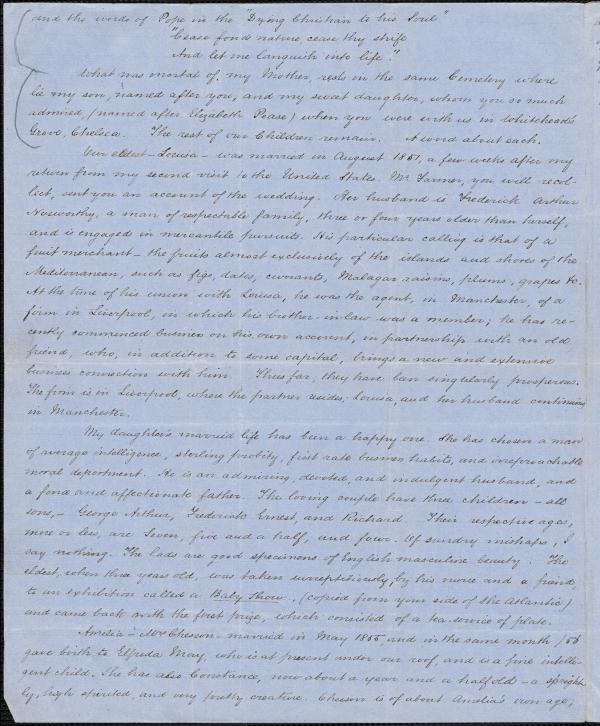 and the words of Pope in the "Dying Christian to his Soul"
"Cease fond nature, cease thy strife
And let me languish into life."
What was mortal of my Mother, rests in the same Cemetery where
lie my son, named after you, and my sweet daughter, whom you so much
admired, (named after Elizabeth Pease) when you were with us in Whitehead's
Grove, Chelsea. The rest of our Children remain. A word about each.
Our eldest – Louisa – was married in August 1851, a few weeks after my
return from my second visit to the United States. Mr. Farmer, you will recol-
lect, sent you an account of the wedding. Her husband is Frederick Arthur
Nosworthy, a man of respectable family, three or four years older than herself,
and is engaged in mercantile pursuits. His particular calling is that of a
fruit merchant – the fruits almost exclusively of the islands and shores of the
Mediterranean, such as figs, dates, currants, Malagar raisins, plums, grapes &c.
At the time of his union with Louisa, he was the agent, in Manchester, of a
firm in Liverpool, in which his brother-in-law was a member; he has re-
cently commenced business on his own account, in partnership with an old
friend, who, in addition to some capital, brings a new and extensive
business connection with him. Thus far, they have been singularly prosperous.
The firm is in Liverpool, where the partner resides; Louisa, and her husband continuing
in Manchester.
My daughter's married life has been a happy one. She has chosen a man
of average intelligence, sterling probity, first rate business habits, and irreproachable
moral deportment. He is an admiring, devoted, and indulgent husband, and
a fond and affectionate father. The loving couple have three children – all
sons, – George Arthur, Frederick Ernest, and Richard. Their respective ages,
more or less, are seven, five and a half, and four. Of sundry mishaps, I
say nothing. The lads are good specimens of English masculine beauty. The
eldest, when three years old, was taken surreptitiously, by his nurse and a friend,
to an exhibition called a Baby Show, (copied from your side of the Atlantic)
and came back with the first prize, which consisted of a tea service of plate.
Amelia – Mrs Chesson – married in May 1855, and in the same month /56
gave birth to Elfrida May, who is at present under our roof, and is a fine intelli-
gent child. She has also Constance, now about a year and a half old – a spright-
ly, high spirited, and very pretty creature. Chesson is of about Amelia's own age,